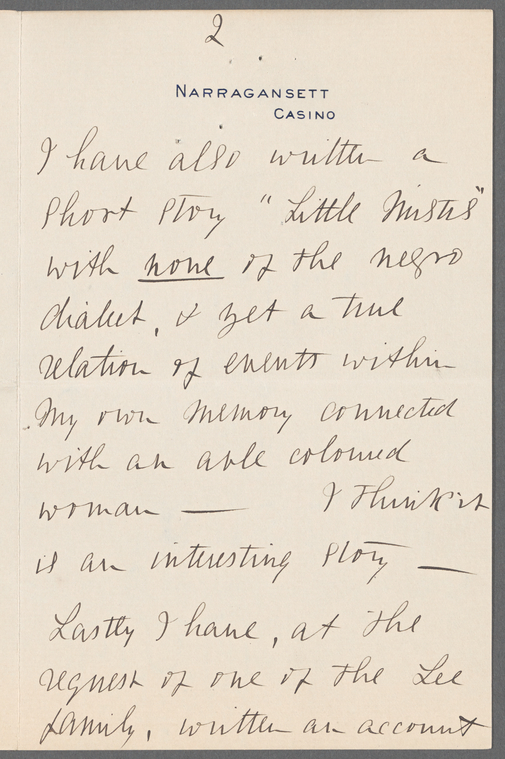 2
NARRAGANSETT
CASINO
I have also written a
short story "Little Mistis"
with none of the negro
dialect, & yet a true
relation of events within
my own memory connected
with an able coloured
woman — I think it
is an interesting story —
Lastly I have, at the
request of one of the Lee
family, written an account